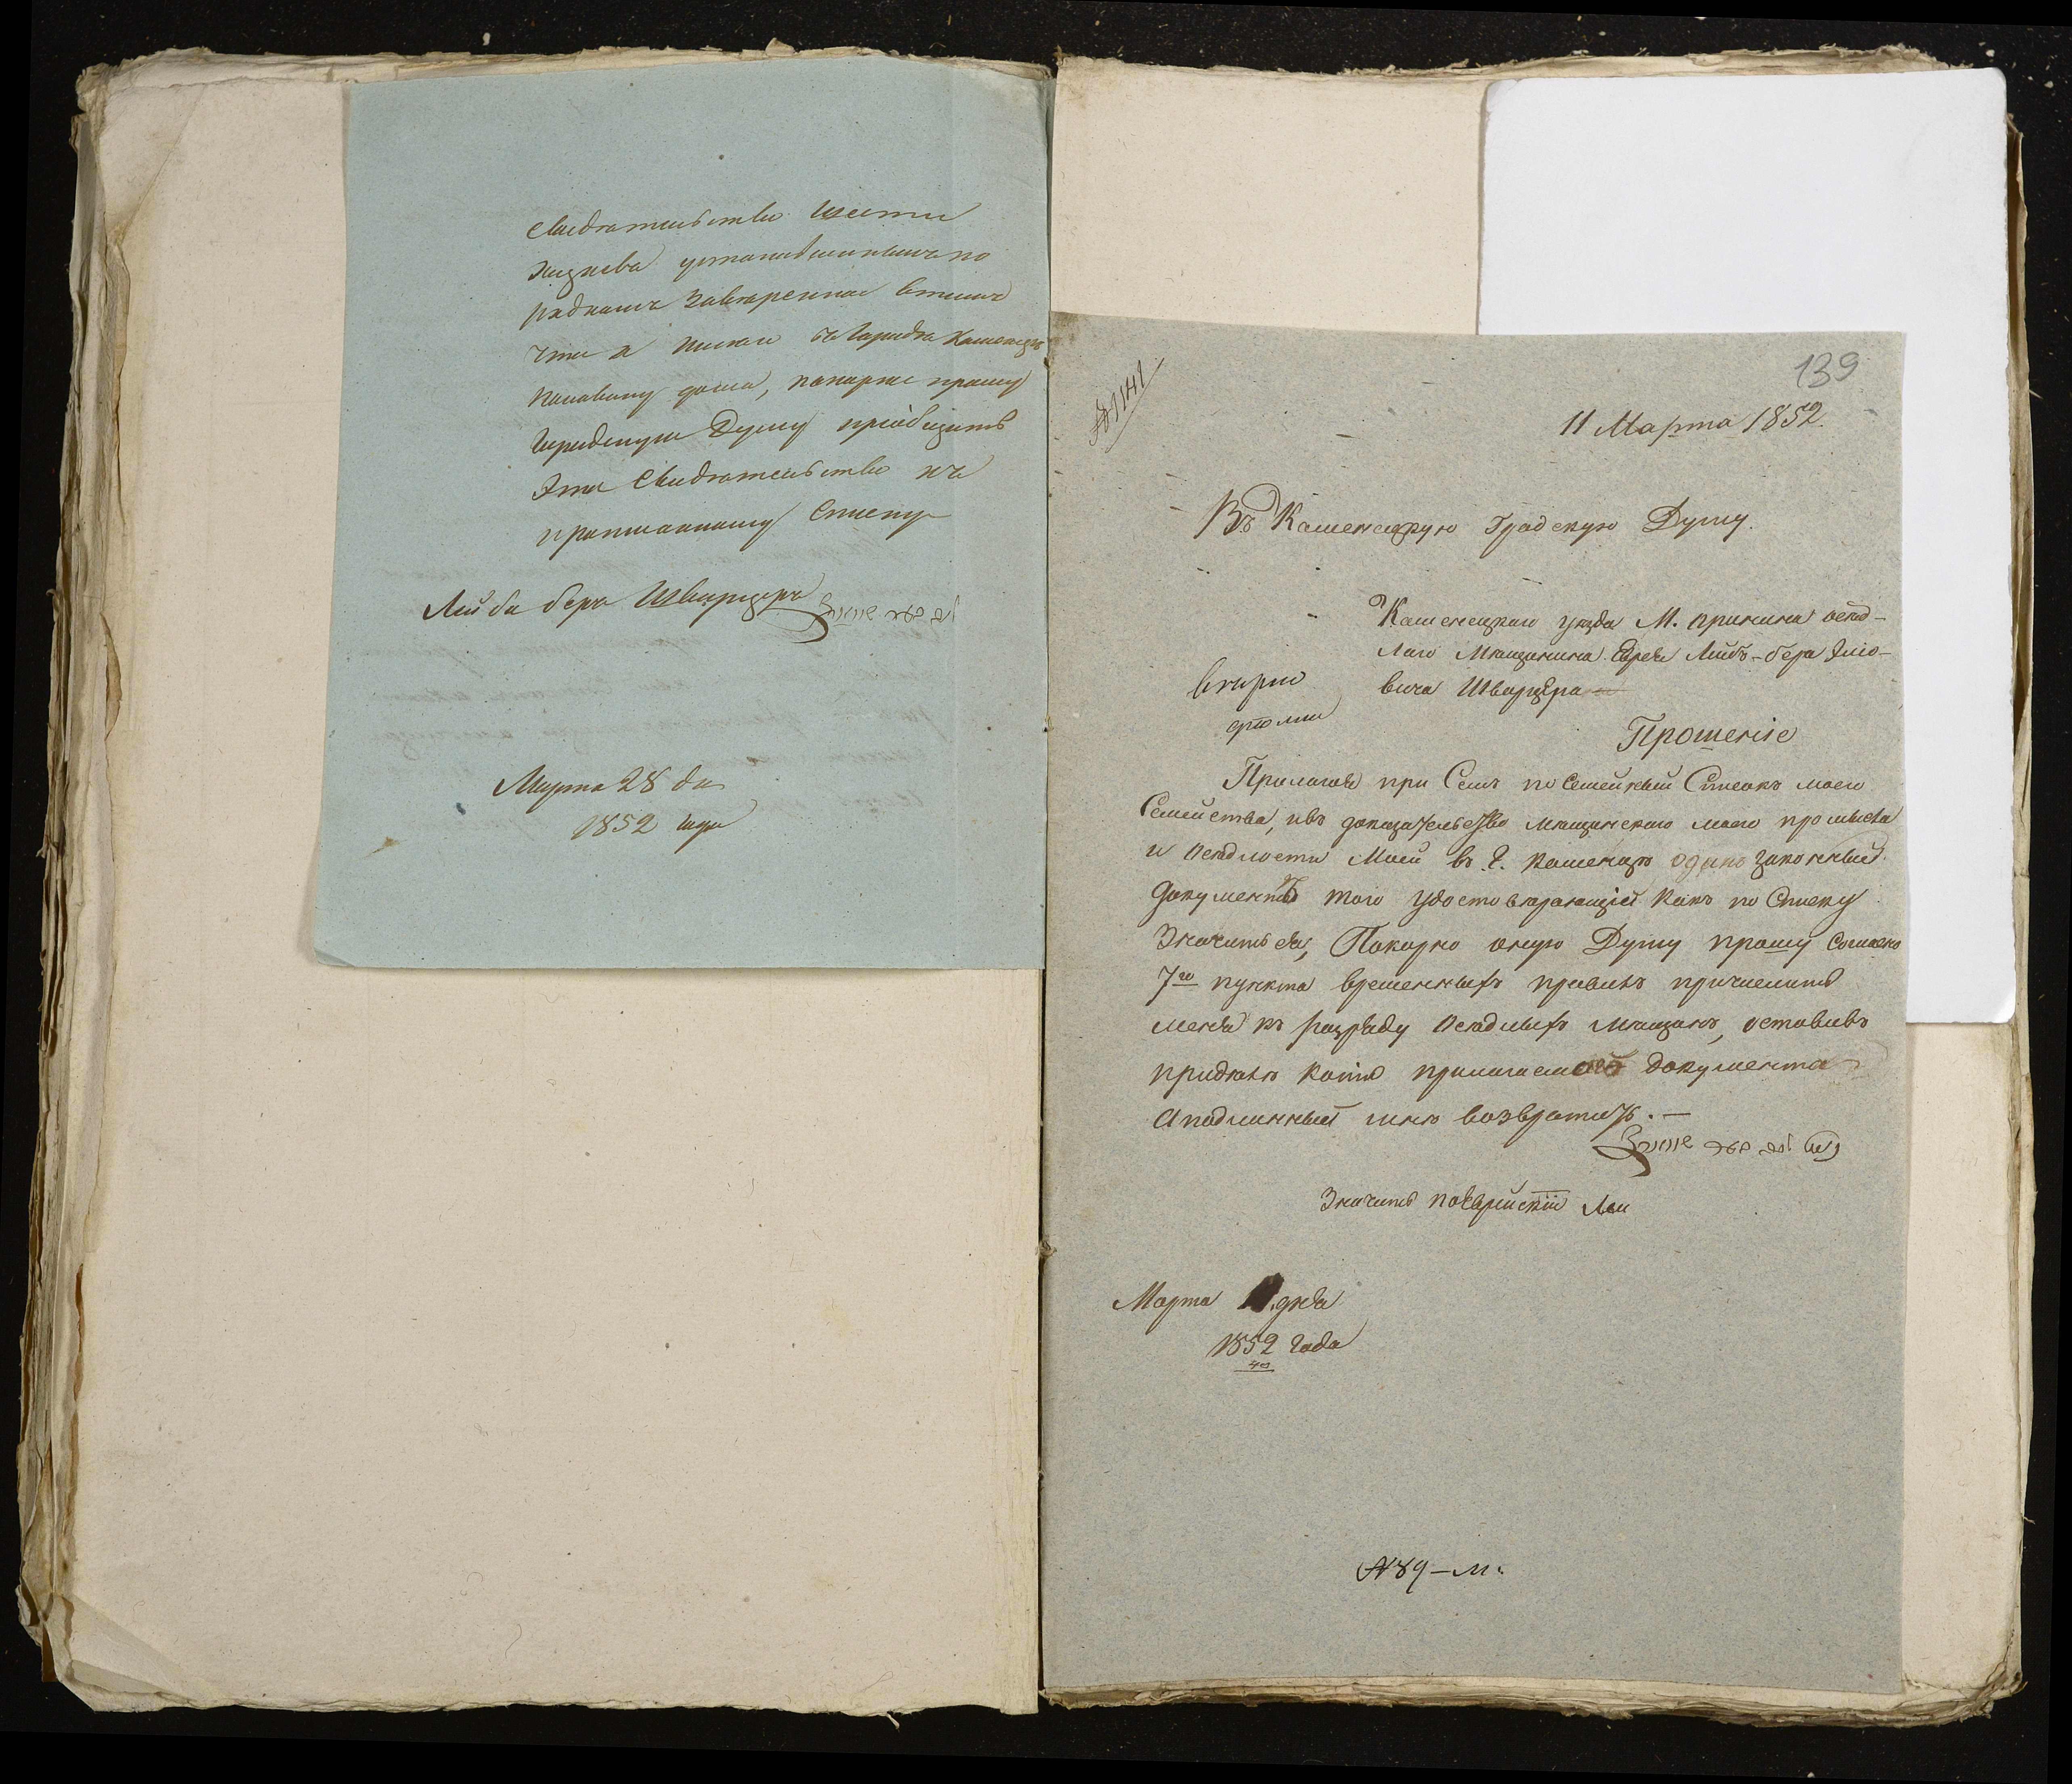 свидѣтельство шести
жителей установленнымъ по
рядкомъ завѣренное втомъ
что я имею въ городѣ Каменцѣ
половину дома, покорно прошу
Городскую Думу пріобщить
Это Свидѣтельство къ
Списку
Лейба бера Шварцера
Марта 28 дн
1852 года
№ 1141
139
11 Марта 1852.
Въ Каменецкую Градскую Думу.
Каменецкаго уѣзда М. осѣд-
лаго Мѣщанина Еврея Лейбъ-бера
вича Шварцера
Прошеніе
Прилагая при Семъ посемейный Списокъ моего
Семейства, ивъ доказательство мѣщанского моего промысла
и осѣдлости Моей въ Г. Каменцѣ одинъ законный
документъ того удостовѣряющій какъ по Списку
Значится, Покорно оную Думу прошу Согласно
7го пункта временныхъ правилъ причислить
меня къ разряду осѣдлыхъ мѣщанъ, оставивъ
придѣлѣ копію прилагаемого документа
Аподлинный мнѣ возвратить. —
Значитъ поЕврейскій Леи
Марта дня
1852 года
№ 89 – М.